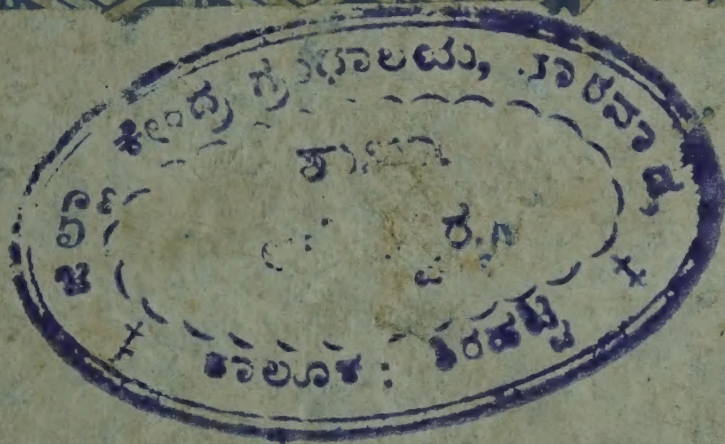 ಜಿಲ್ಲಾ ಕೇಂದ್ರ ಗ್ರಂಥಾಲಯ, ಧಾರವಾಡ
ಶಾಖಾ
ತಾಲೂಕ : ಶಿರಹಟ್ಟಿ